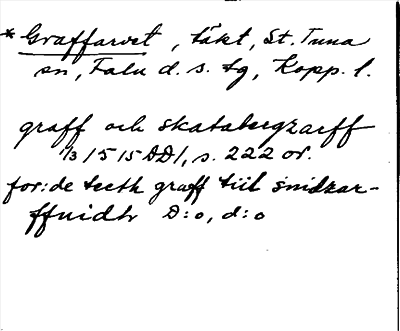 * Graffarvet, täkt, St. Tuna
sn, Falu d. s. tg, Kopp. l.
graff och skatabergzarff
1/3 1515 DD1, s. 222 or.
for:de teeth graff tiil snidzar-
ffuidh D:o, d:o